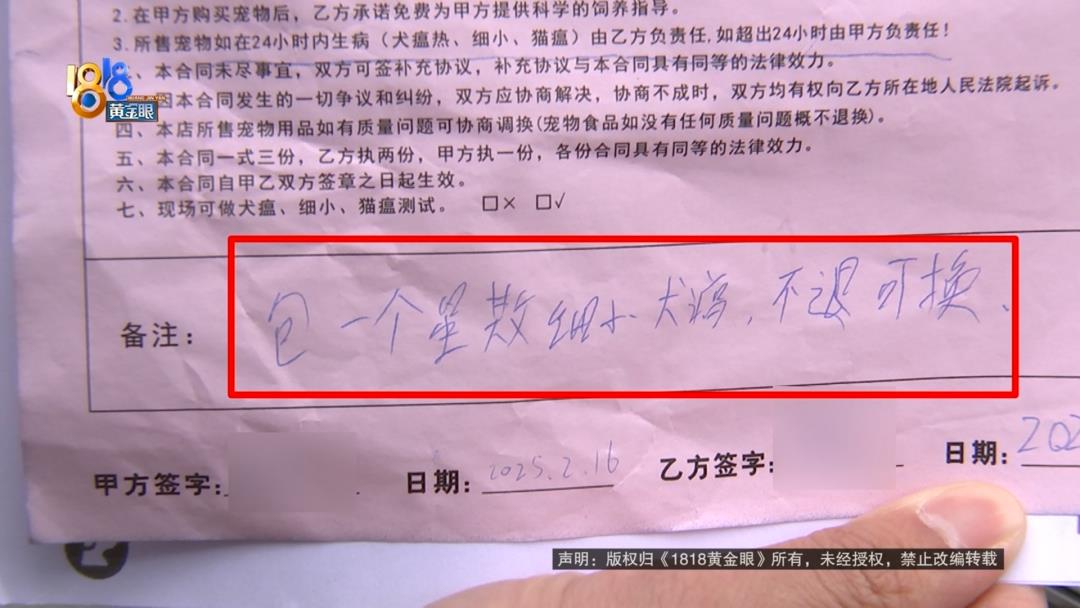 2.在甲方购买宠物后，乙方承诺免费为甲方提供科学的饲养指导。
3.所售宠物如在24小时内生病（犬瘟热、细小、猫瘟）由乙方负责任,如超出24小时由甲方负责任！
、本合同未尽事宜，双方可签补充协议，补充协议与本合同具有同等的法律效力。
因本合同发生的一切争议和纠纷，双方应协商解决，协商不成时，双方均有权向乙方所在地人民法院起诉。
四、本店所售宠物用品如有质量问题可协商调换(宠物食品如没有任何质量问题概不退换)。
五、本合同一式三份，乙方执两份，甲方执一份，各份合同具有同等的法律效力。
六、本合同自甲乙双方签章之日起生效。
七、现场可做犬瘟、细小、猫瘟测试。 □× □√
备注: 包一个星 细小犬瘟，不退可换、
甲方签字: 日期: 2025.2.16 乙方签字: 日期: 202
1818
黄金眼
声明：版权归《1818黄金眼》所有，未经授权，禁止改编转载